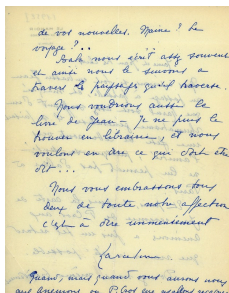 de vos nouvelles. Maine ? Le
voyage ?...
nous écrit assez souvent
et ainsi nous le suivons à
travers le paysage qu'il traverse.
Nous voudrions aussi le
livre de Jean – Je ne puis le
trouver en librairie, et nous
voulons en dire ce qui doit être
dit...
Nous vous embrassons tous
deux de toute notre affection
c'est à dire immensément
Quand, mais quand vous aurons nous